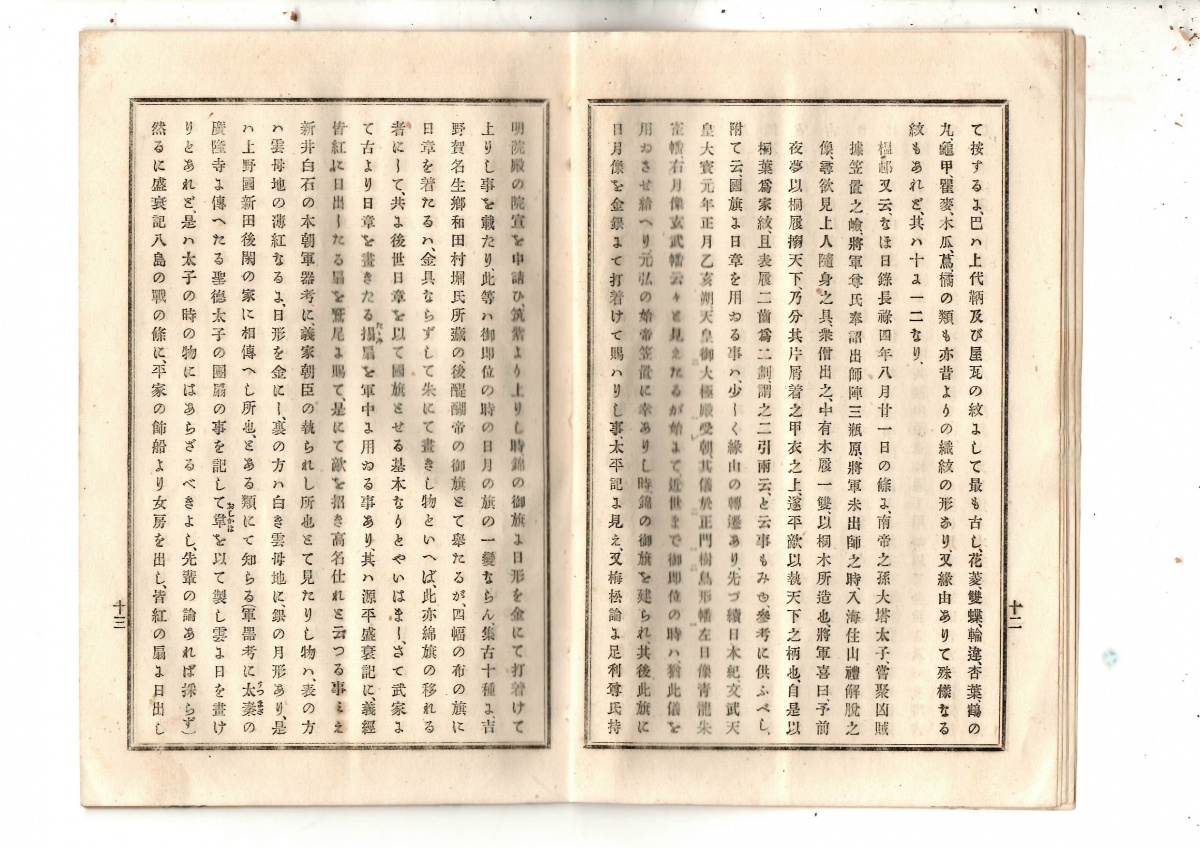 て按するよ、巴ハ上代鞆及び屋瓦の紋よして最も古し、花菱雙蝶、輪違、杏葉鶴の
丸、龜甲、瞿麥、木瓜、蔦、橘の類も亦昔よりの織紋の形あり、又緣由ありて殊樣なる
紋もあれど其ハ十よ一二なり、
又云、なほ日錄長祿四年八月廿一日の條よ、南帝之孫大塔太子、嘗聚凶賊
據笠置之嶮、將軍尊氏奉詔出師陣三瓶原、將軍未出師之時、入海住山禮解脫之
像、尋欲見上人隨身之具、衆僧出之、中有木履一雙、以桐木所造也、將軍喜曰予前
夜夢以桐履搊天下、乃分其片屑着之甲衣之上、遂平敵以執天下之柄也、自是以
桐葉爲家紋、且表履二齒爲二劃謂之二引兩云、と云事もみゆ、參考に供ふべし、
附て云、國旗よ日章を用ゐる事ハ、少しく緣由の轉遷あり、先づ續日本紀、文武天
皇大寶元年正月乙亥朔天皇御大極殿受朝、其儀於正門樹烏形幢左日像青龍朱
雀幡右月像玄武幡云々と見えたるが始よて近世まで御即位の時ハ猶此儀を
用ゐさせ給へり元弘の始帝笠置に幸ありし時、錦の御旗を建られ、其後此旗に
日月像を金銀よて打着けて賜ハりし事、太平記よ見え、又梅松論よ足利尊氏持
十二
明院殿の院宣を申請ひ、筑紫より上りし時錦の御旗よ日形を金にて打着けて
上りし事を載たり、此等ハ御即位の時の日月の旗の一變ならん、集古十種よ、吉
野賀名生鄕和田村堀氏所藏の、後醍醐帝の御旗とて擧たるが、四幅の布の旗に
日章を着たるハ、金具ならずして朱にて畫きし物といへば、此亦錦旗の移れる
者にして、共よ後世日章を以て國旗とせる基本なりとやいはまし、さて武家よ
て古より日章を畫きたる搨扇を軍中よ用ゐる事あり、其ハ源平盛衰記に、義經
皆紅に日出したる扇を鷲尾よ賜て、是にて敵を招き高名仕れと云つる事みえ
新井白石の本朝軍器考に、義家朝臣の執られし所也とて見たりし物ハ、表の方
ハ雲母地の薄紅なるよ、日形を金にし、裏の方ハ白き雲母地に、銀の月形あり、是
ハ上野國新田後閑の家に相傳へし所也、とある類にて知らる(軍器考に太秦の
廣隆寺よ傳へたる聖德太子の團扇の事を記して韋を以て製し雲よ日を畫け
りとあれど、是ハ太子の時の物にはあらざるべきよし、先輩の論あれば採らず)
然るに盛衰記八島の戰の條に、平家の飾船より女房を出し、皆紅の扇よ日出し
十三